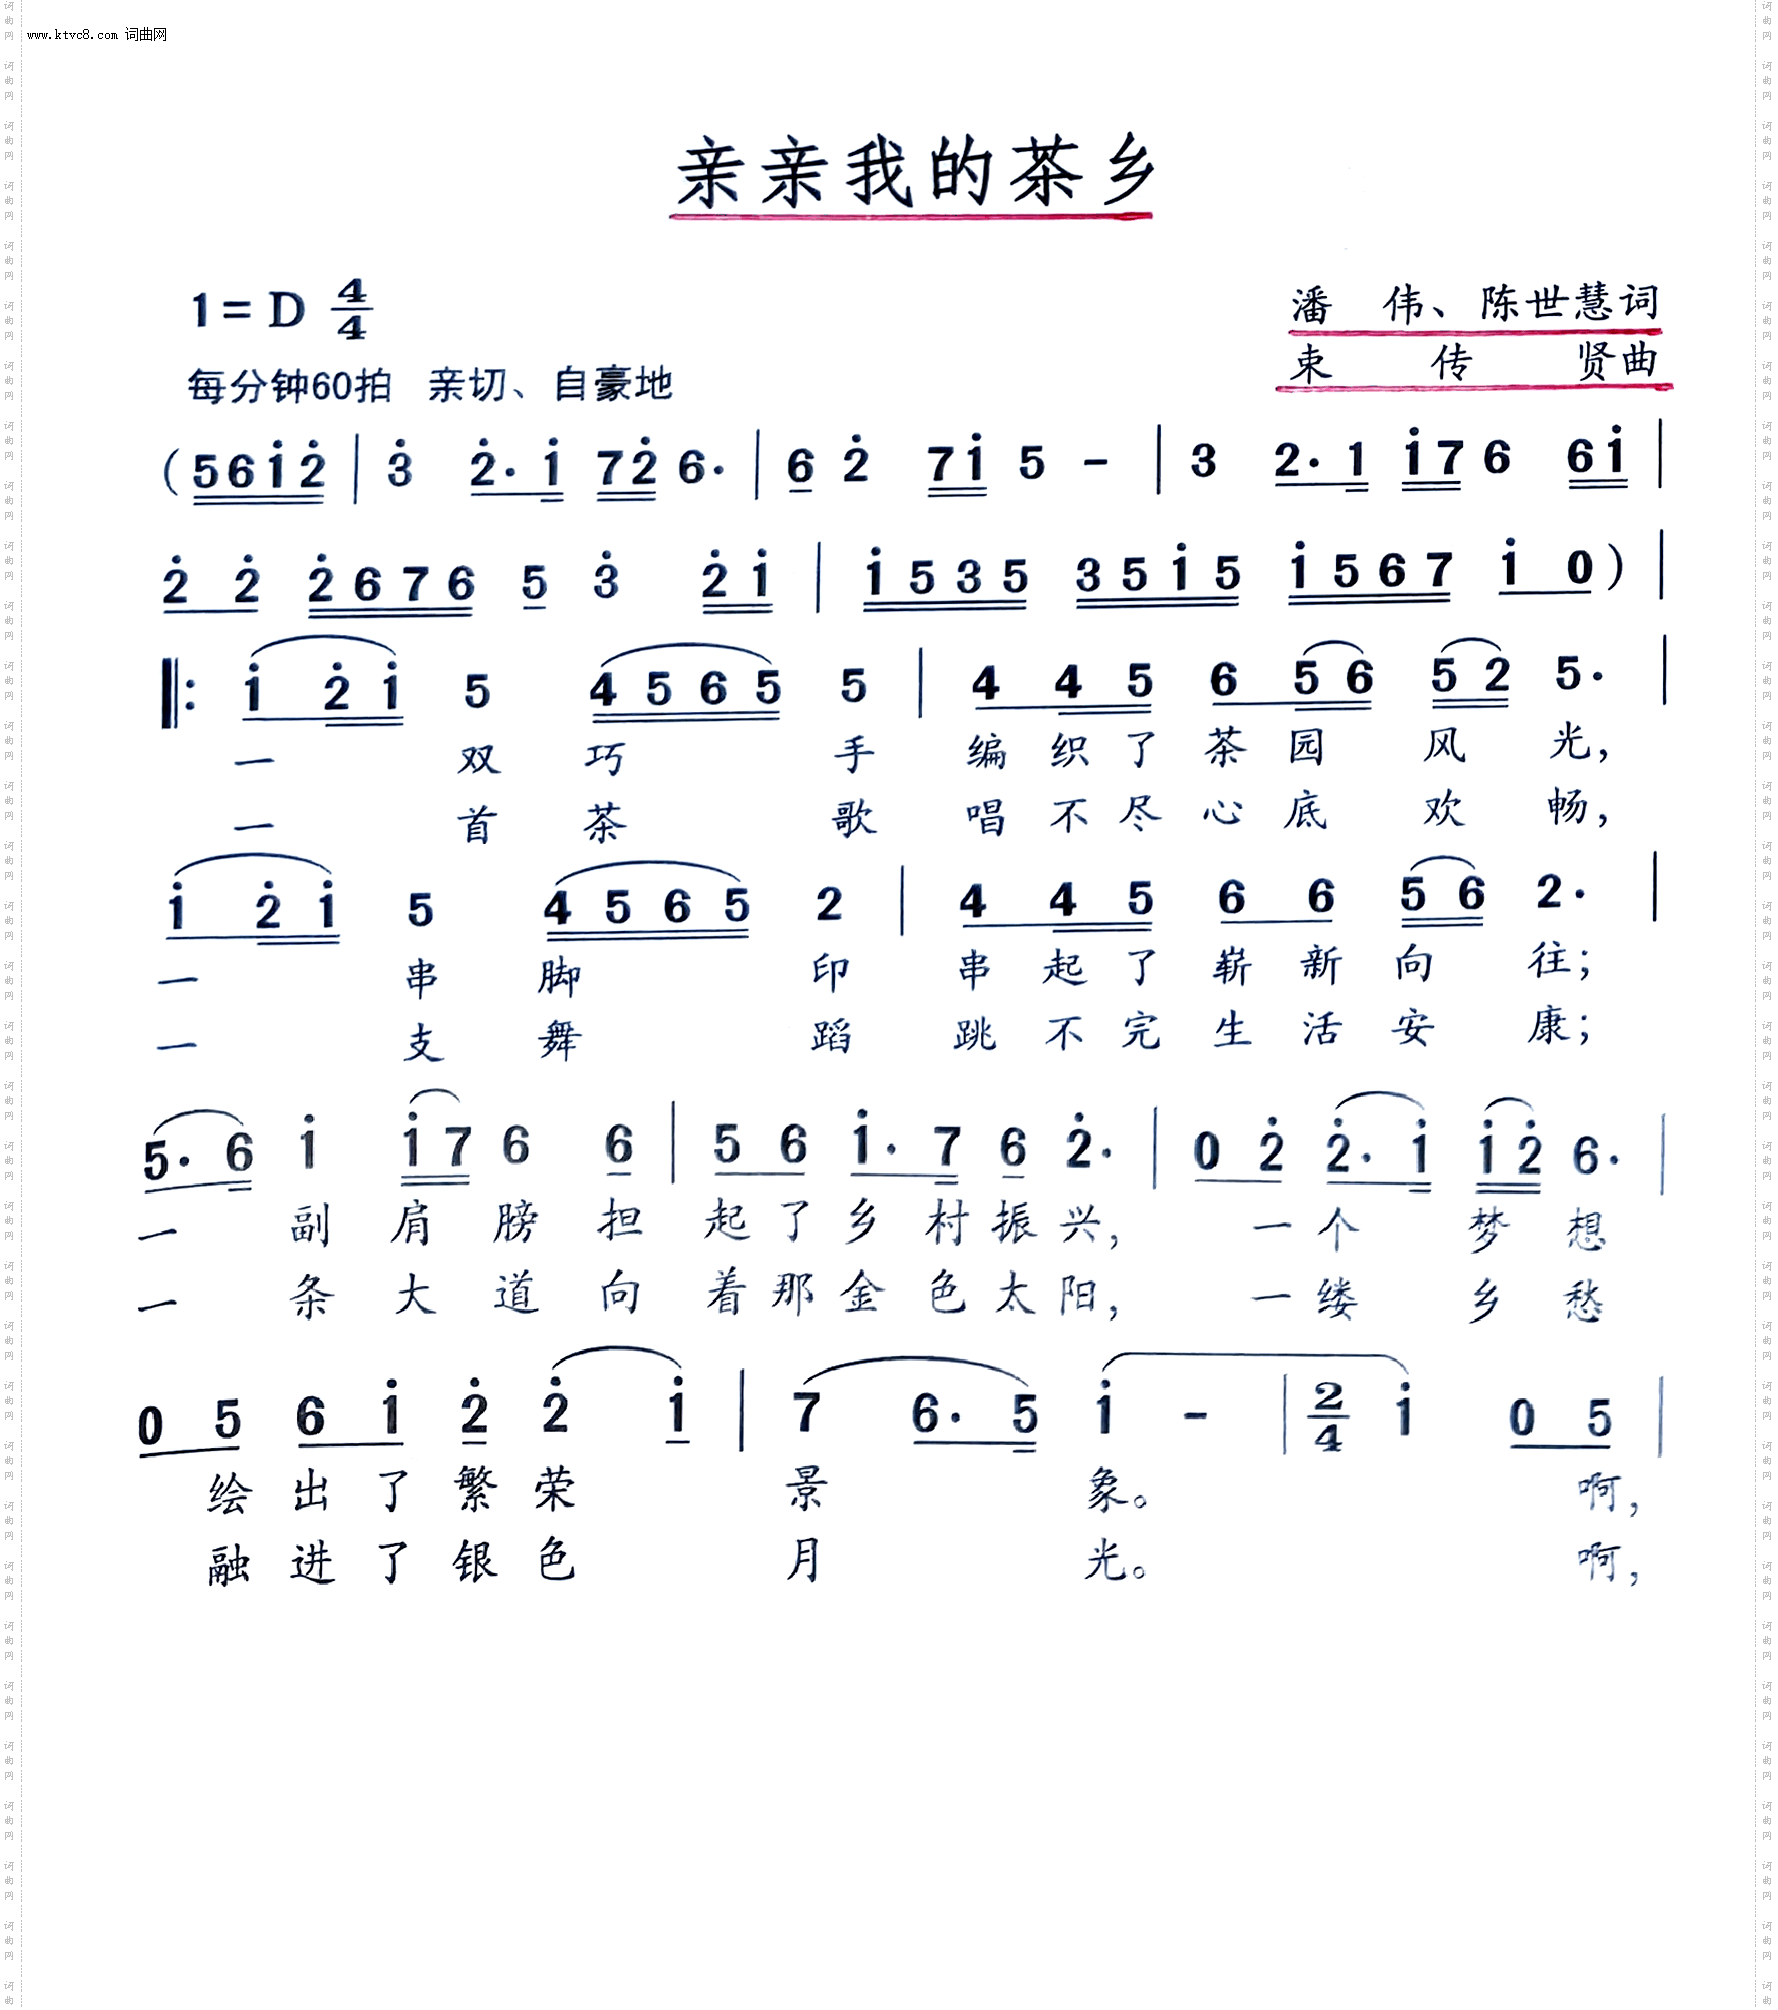 www.ktvc8.com 词曲网
亲亲我的茶乡
1=D 4/4
潘 伟、陈世慧词
每分钟60拍 亲切、自豪地
束 传 贤曲
(5 6 1̇ 2̇ | 3̇ 2̇· 1̇ 7 2̇ 6· | 6 2̇ 7 1̇ 5 - | 3 2· 1 1̇ 7 6 6 1̇ |
2̇ 2̇ 2̇ 6 7 6 5 3̇ 2̇ 1̇ | 1̇ 5 3 5 3 5 1̇ 5 1̇ 5 6 7 1̇ 0) |
‖: 1̇ 2̇ 1̇ 5 4 5 6 5 5 | 4 4 5 6 5 6 5 2 5· |
一 双 巧 手 编 织 了 茶 园 风 光,
一 首 茶 歌 唱 不 尽 心 底 欢 畅,
1̇ 2̇ 1̇ 5 4 5 6 5 2 | 4 4 5 6 6 5 6 2· |
一 串 脚 印 串 起 了 崭 新 向 往;
一 支 舞 蹈 跳 不 完 生 活 安 康;
5· 6 1̇ 1̇ 7 6 6 | 5 6 1̇· 7 6 2̇· | 0 2̇ 2̇· 1̇ 1̇ 2̇ 6· |
一 副 肩 膀 担 起 了 乡 村 振 兴, 一 个 梦 想
一 条 大 道 向 着 那 金 色 太 阳, 一 缕 乡 愁
0 5 6 1̇ 2̇ 2̇ 1̇ | 7 6· 5 1̇ - | 2/4 1̇ 0 5 |
绘 出 了 繁 荣 景 象。 啊,
融 进 了 银 色 月 光。 啊,